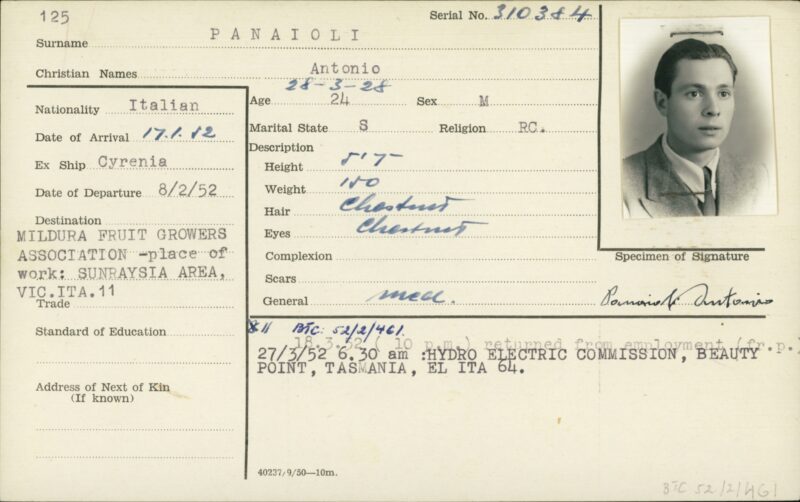 125
Serial No. 310384
Surname PANAIOLI
Christian Names Antonio
28-3-28
Nationality Italian
Age 24 Sex M
Date of Arrival 17.1.52
Marital State S Religion RC.
Ex Ship Cyrenia
Description
Height 5'5"
Date of Departure 8/2/52
Weight 150
Hair Chestnut
Destination
MILDURA FRUIT GROWERS
ASSOCIATION -place of
work: SUNRAYSIA AREA,
VIC.ITA.11
Eyes Chestnut
Complexion
Specimen of Signature
Scars
Trade
General med.
Panaioli Antonio
Standard of Education
BTC: 52/2/461.
18.3.52 ( 10 p.m.) returned from employment (fr.p.)
27/3/52 6.30 am :HYDRO ELECTRIC COMMISSION, BEAUTY
POINT, TASMANIA, EL ITA 64.
Address of Next of Kin
(If known)
40237/9/50—10m.
BTC 52/2/461